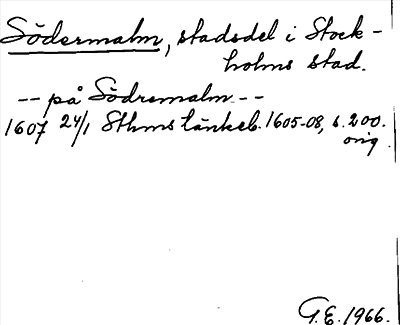 Södermalm, stadsdel i Stock-
holms stad.
-- på Södremalm --
1607 24/1 Sthms tänkeb. 1605-08, s. 200.
orig
G.E. 1966.